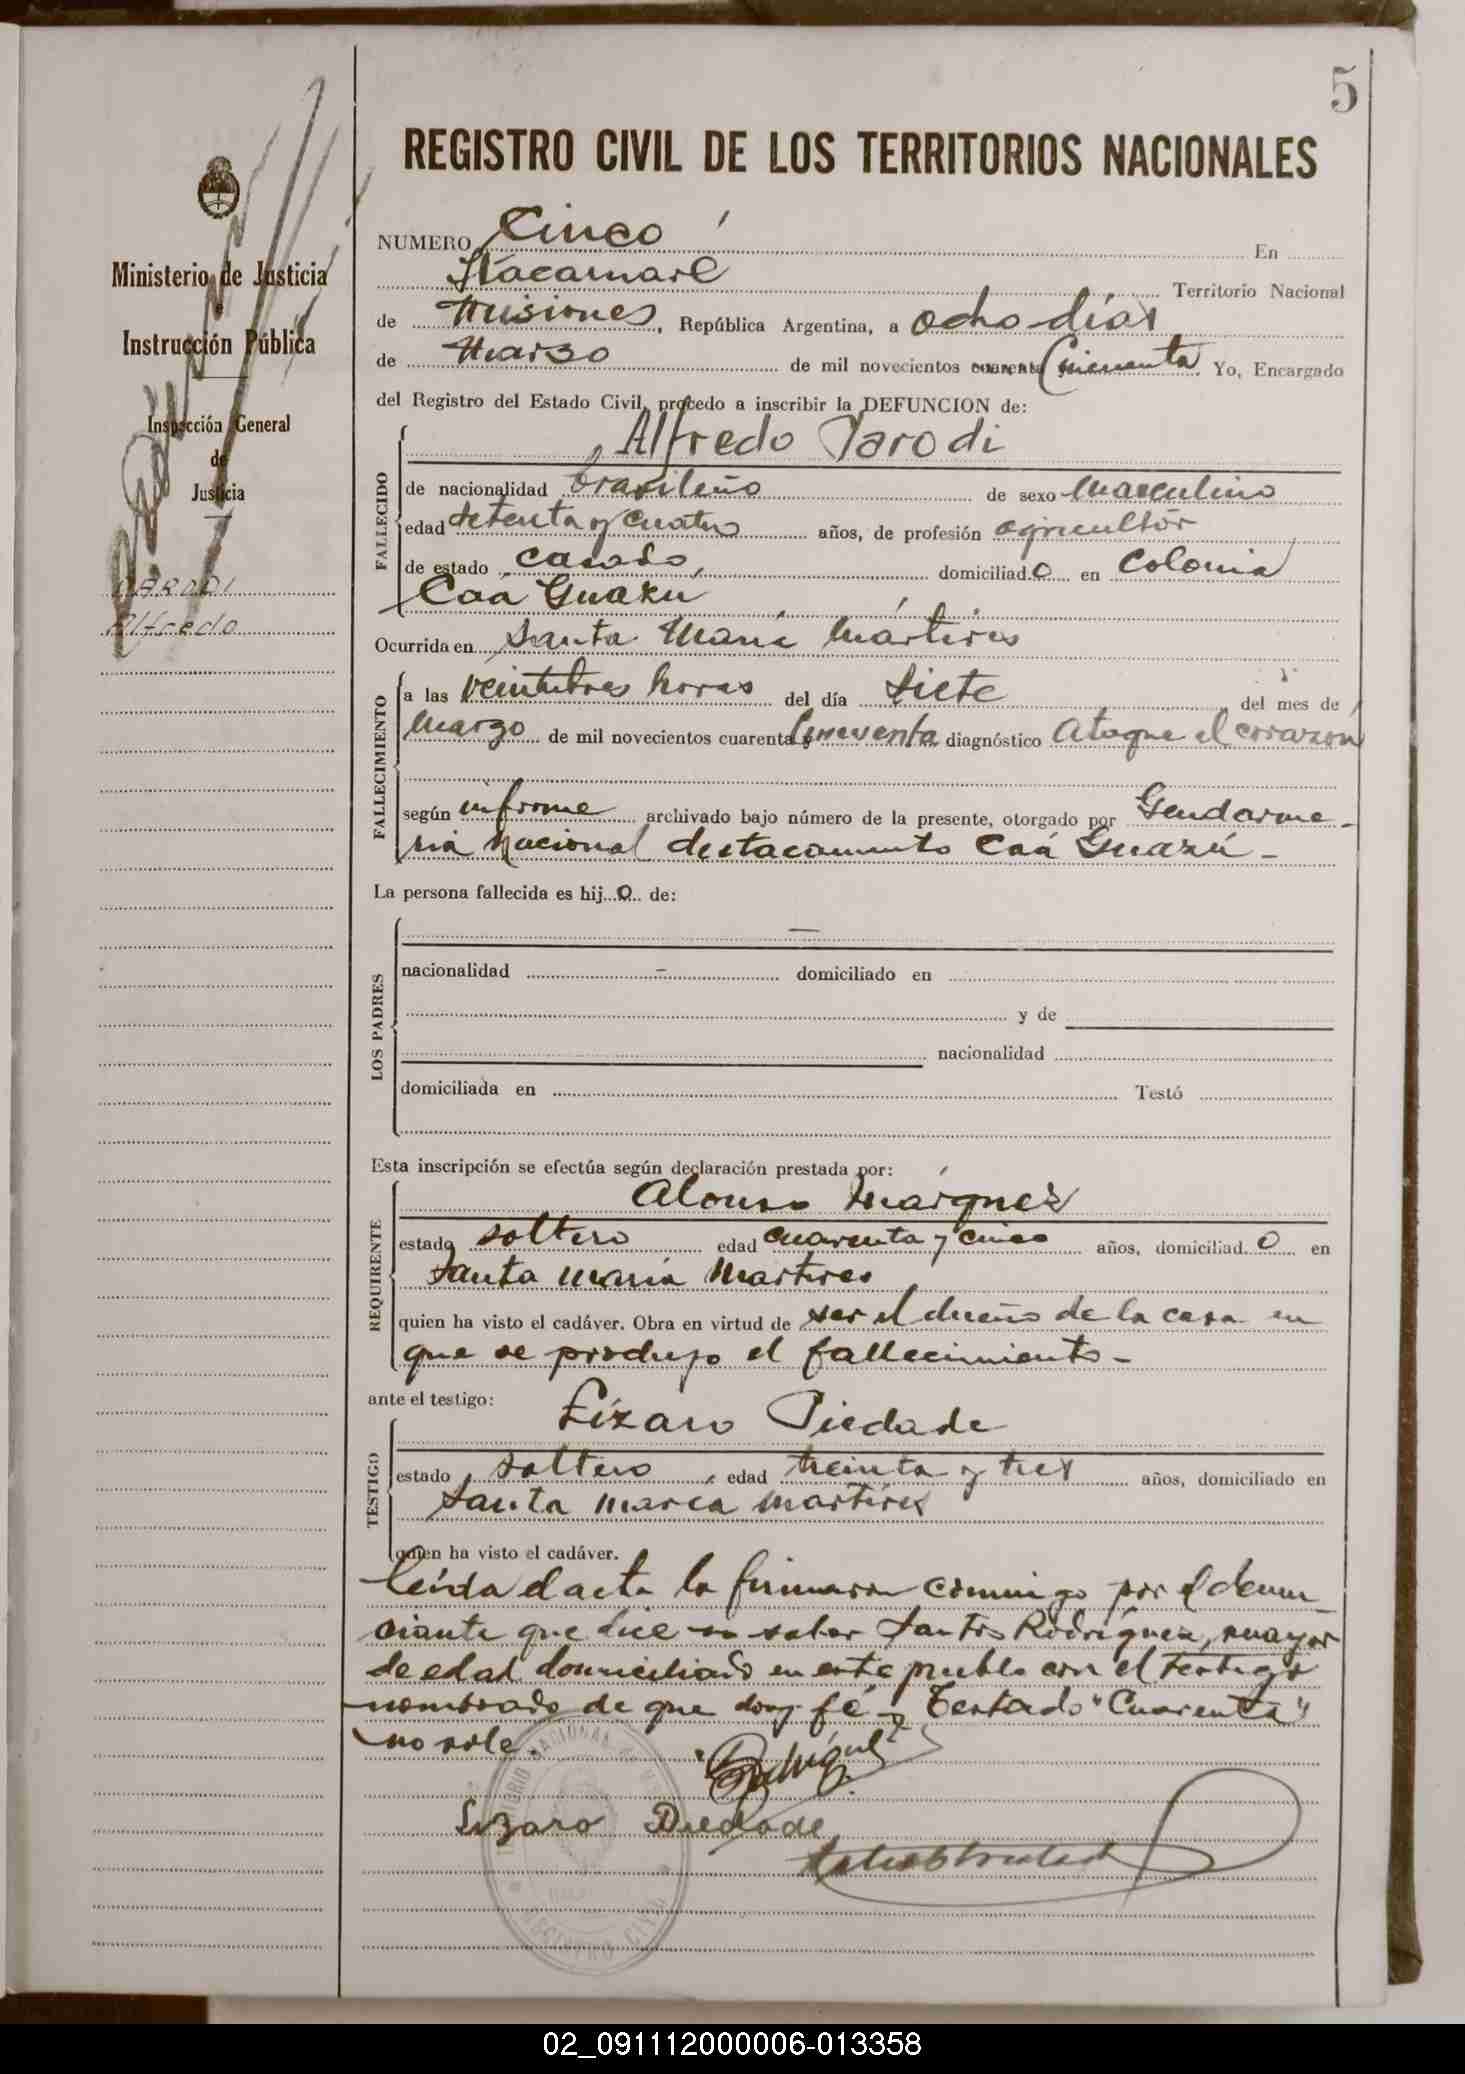 5
REGISTRO CIVIL DE LOS TERRITORIOS NACIONALES
Ministerio de Justicia
e
Instrucción Pública
Inspección General
de
Justicia
PARODI
Alfredo
NUMERO Cinco En
Itacaruaré Territorio Nacional
de Misiones, República Argentina, a ocho días
de Marzo de mil novecientos cuarenta Cincuenta Yo, Encargado
del Registro del Estado Civil, procedo a inscribir la DEFUNCION de:
FALLECIDO
Alfredo Parodi
de nacionalidad brasileño de sexo Masculino
edad setenta y cuatro años, de profesión agricultor
de estado casado, domiciliad o en Colonia
Caá Guazú
Ocurrida en Santa María Mártires
FALLECIMIENTO
a las veintitres horas del día siete del mes de
Marzo de mil novecientos cuarenta Cincuenta diagnóstico Ataque el corazón
según informe archivado bajo número de la presente, otorgado por Gendarme-
ria Nacional destacamento Caá Guazú -
La persona fallecida es hij o de:
LOS PADRES
—
nacionalidad - domiciliado en
y de
nacionalidad
domiciliada en Testó
Esta inscripción se efectúa según declaración prestada por:
REQUIRENTE
Alonso Márquez
estado soltero edad cuarenta y cinco años, domiciliad o en
Santa María Martires
quien ha visto el cadáver. Obra en virtud de ser el dueño de la casa en
que se produjo el fallecimiento -
ante el testigo:
TESTIGO
Lízaro Piedade
estado soltero, edad treinta y tres años, domiciliado en
Santa María Martires
quien ha visto el cadáver.
Leída el acta la firmaron conmigo por el denun-
ciante que dice no saber Santos Rodríguez, mayor
de edad domiciliado en este pueblo con el testigo
nombrado de que doy fé - Testado "Cuarenta"
no vale.
Lizaro Piedade
REGISTRO CIVIL
02_091112000006-013358